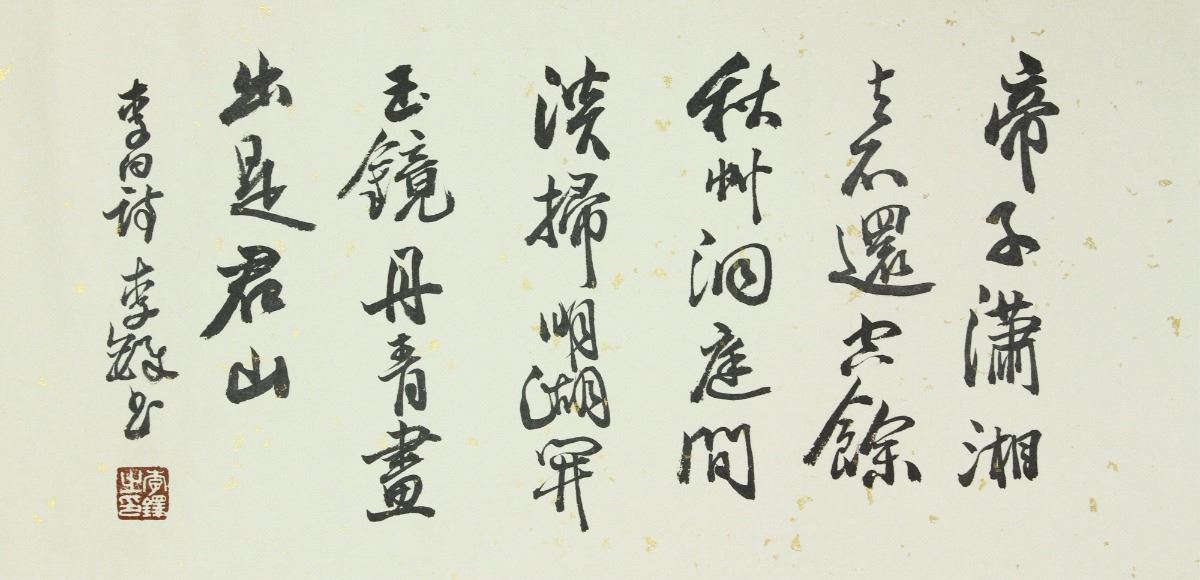 帝子瀟湘
去不還空餘
秋艸洞庭間
淡掃明湖開
玉鏡丹青畫
出是君山
李白詩 李鐸书
李鐸之印